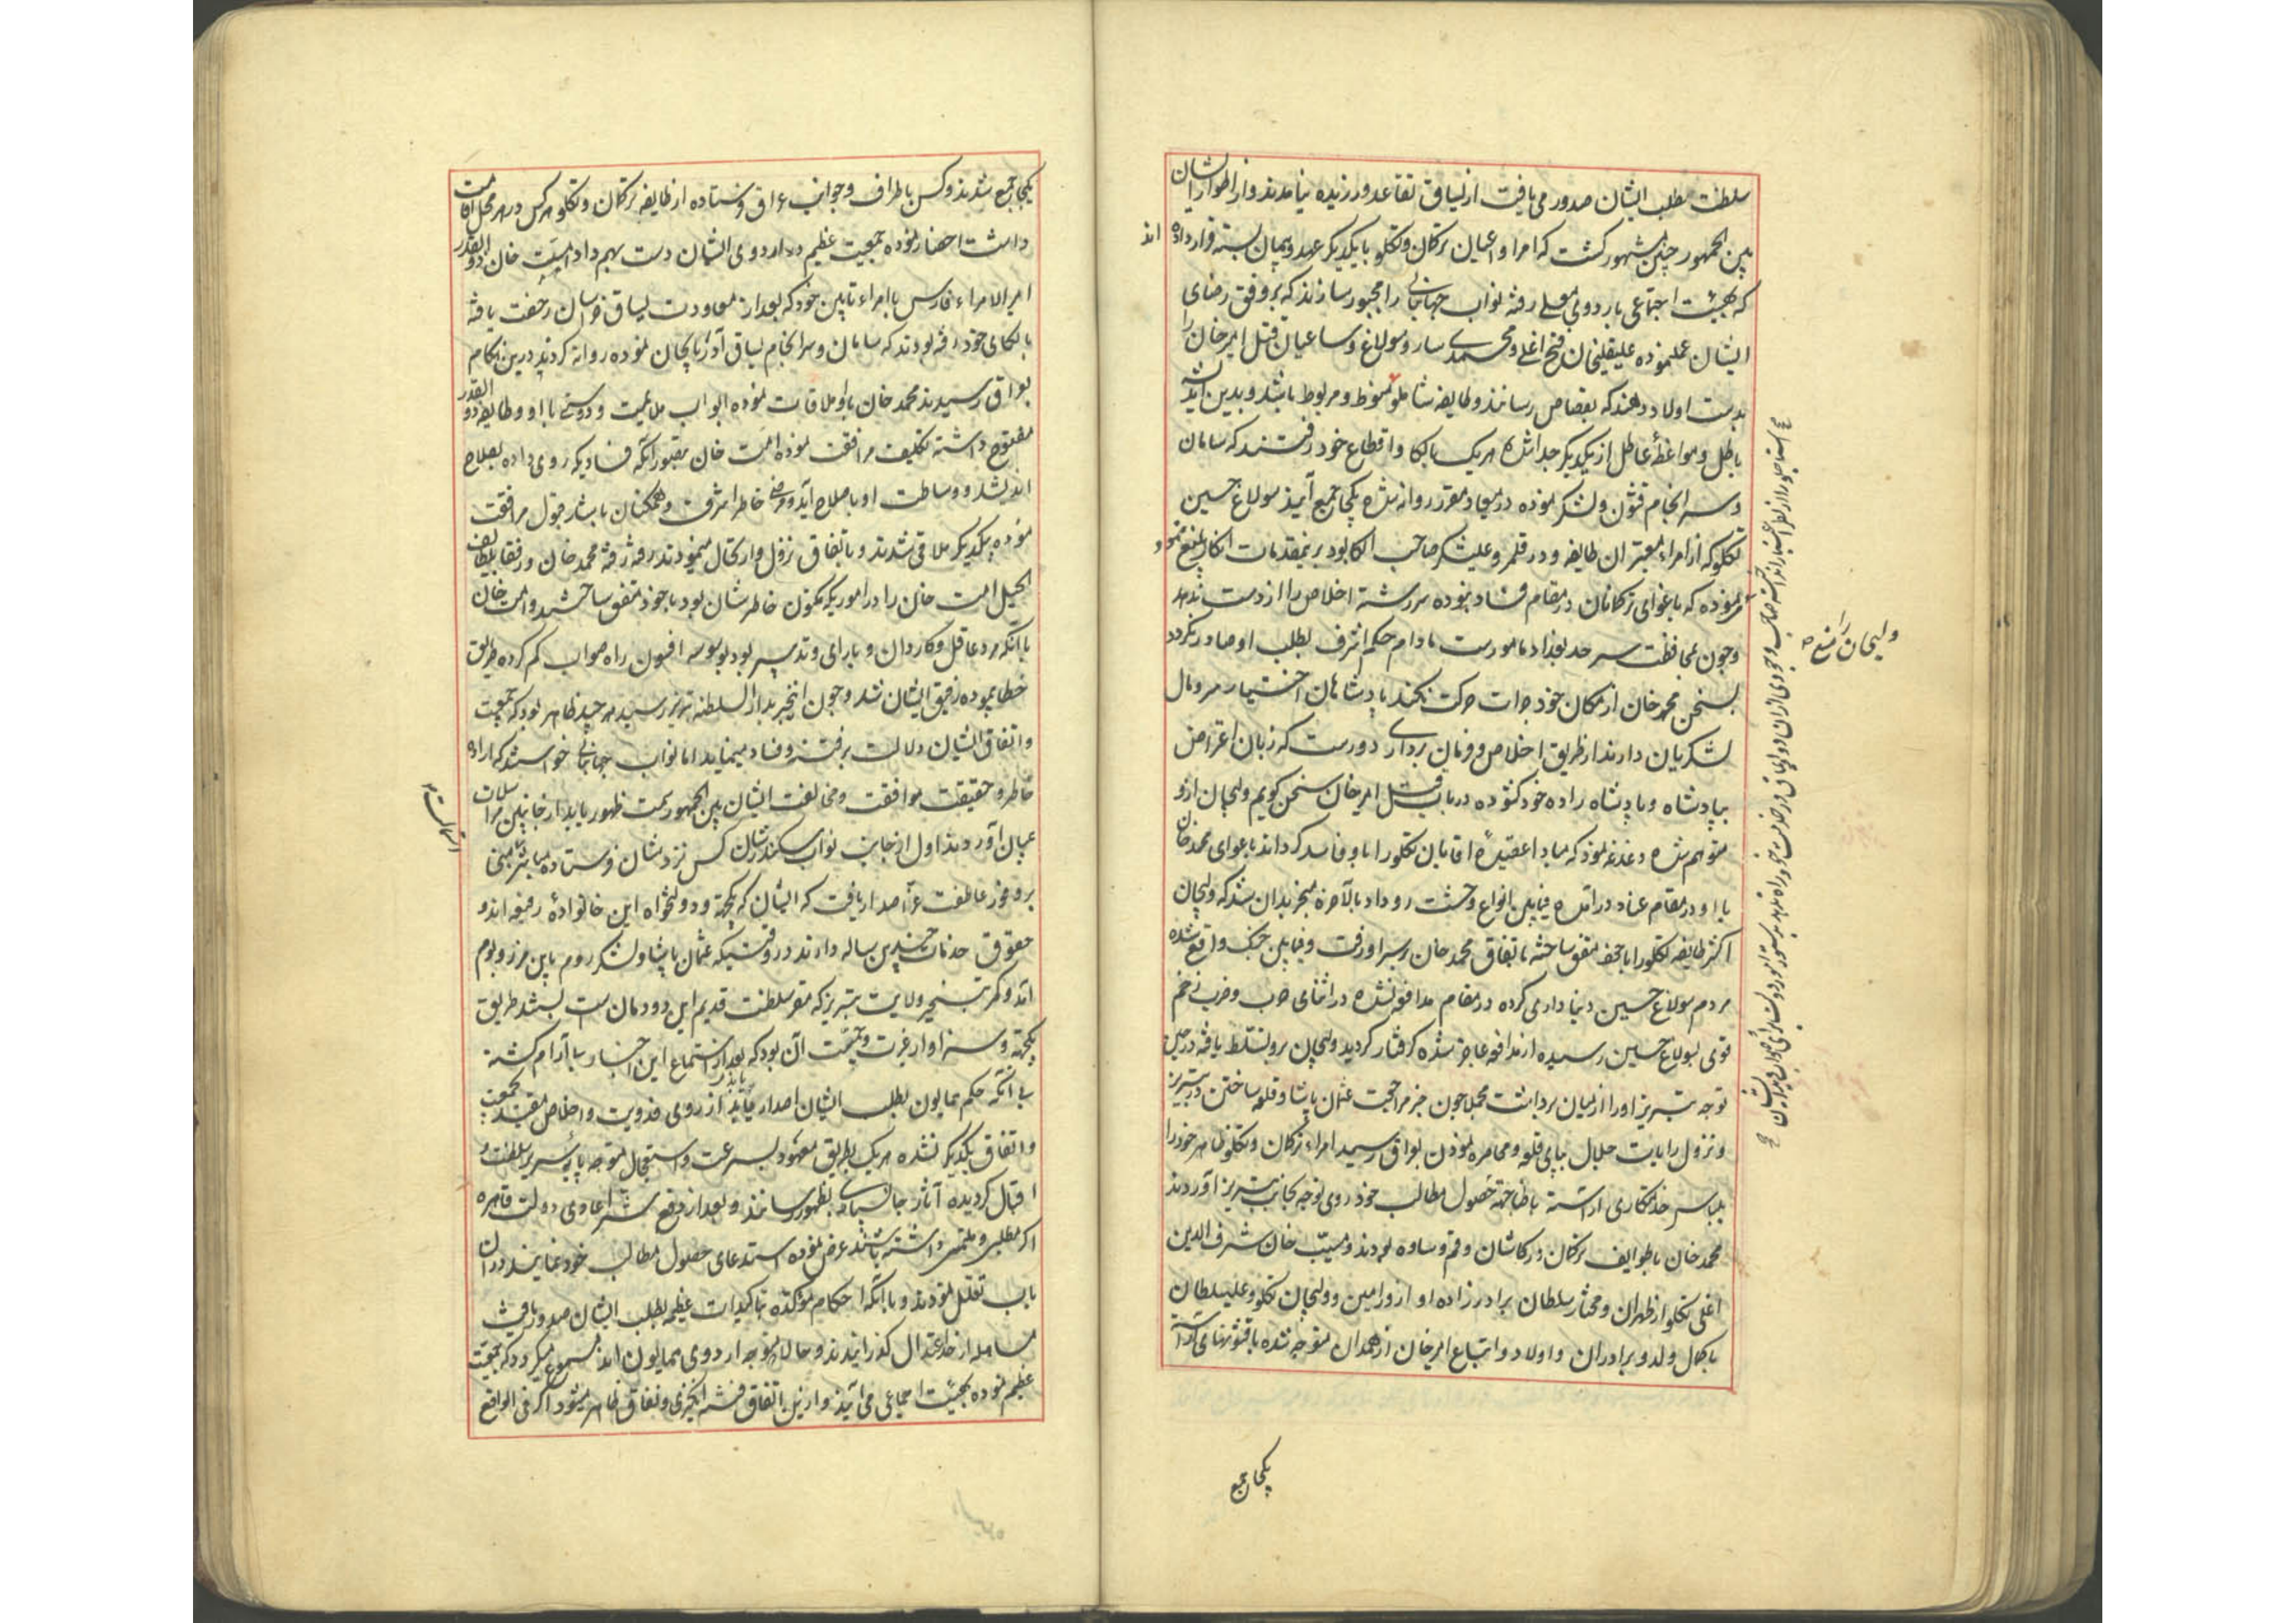 سلطنت مطلب ایشان صدور می یافت از لساق تقاعد ورزیده نیامدند و از اطوار ایشان
بین الجمهور چنین مشهور گشت که امرا و اعیان ترکمان و تکلو با یکدیگر عهد و پیمان بسته قرار داده اند
که بهیئت اجتماعی باردوی معلی رفته نواب جهانبانی را مجبور سازند که بر وفق رضای
ایشان عمل نموده علیقلیخان فتح اغلی و محمدی سارو سولاغ و ساعیان قتل امیرخان را
بدست اولاد دهند که بقصاص رسانند و طایفه شاملو مربوط باشد و بدین اندیشه
باطل و مواعظه عاطل از یکدیگر جدا شده هریک بالکا و اقطاع خود رفتند که سامان
و سرانجام قشون و لشکر نموده در میعاد مقرر روانه شده یکجا جمع آیند سولاغ حسین
تکلو که از امراء معتبر ان طایفه و در قلمرو علیشکر صاحب الکا بود برینمقدمات انکار بلیغ نمود و
که باغوای ترکمانان در مقام فساد نبوده سررشته اخلاص را از دست ندهد
و چون بمحافظت سرحد بغداد مامورست مادام حکم اشرف بطلب او صادر نگردد
بسخن محمدخان از مکان خود جرات حرکت نکند پادشاهان اختیار سر و مال
لشکریان دارند از طریق اخلاص و فرمان برداری دورست که زبان اعتراض
بپادشاه و پادشاه زاده خود گشوده در باب قتل امیرخان سخن گویم ولیجان ازو
متوهم شده دغدغه نمود که مبادا عقیده اقایان تکلو را باو فاسد گرداند باغوای محمدخان
با او در مقام عناد درآمده فیمابین انواع وحشت رو داد بالاخره منجر بدان شد که ولیجان
اکثر طایفه تکلو را با خود متفق ساخته باتفاق محمدخان بر سر او رفت و فیمابین جنگ واقع شده
مردم سولاغ حسین دنیاداری کرده در مقام مدافعه نشده در اثنای حرب و ضرب زخم
قوی بسولاغ حسین رسیده از مدافعه عاجز شده گرفتار گردید ولیجان برو تسلط یافته در حین
توجه تبریز او را از میان برداشت مجملا چون خبر مراجعت عثمان پاشا و قلعه ساختن در تبریز
و نزول رایات جلال بپای قلعه و محاصره نمودن بعراق رسید امراء ترکمان و تکلو ظاهر خود را
بلباس خدمتکاری اراسته باطنا جهة حصول مطالب خود روی توجه بجانب تبریز آوردند
محمد خان با طوایف ترکمان در کاشان و قم و ساوه بودند و مسیب خان شرف الدین
اغلی تکلو از طهران و مختار سلطان برادرزاده او از ورامین و ولیجان تکلو و علیسلطان
پاکمال ولد و برادران و اولاد و اتباع امیرخان از همدان متوجه شده با قشونهای اراسته
ولیجان را منع
یکجا جمع
یکجا جمع شدند و کس باطراف و جوانب عراق فرستاده از طایفه ترکمان و تکلو هرکس در هر محل اقامت
داشت احضار نموده جمعیت عظیم در اردوی ایشان دست بهم داد امت خان ذوالقدر
امیر الامراء فارس با امراء تابین خود که بعد از معاودت لساق خراسان رخصت یافته
بالکای خود رفته بودند که سامان و سرانجام لساق آذربایجان نموده روانه گردند درین هنگام
بعراق رسیدند محمد خان باو ملاقات نموده ابواب ملایمت و دوستی با او و طایفه ذوالقدر
مفتوح داشته تکلیف مرافقت نموده امت خان بتصور آنکه فسادیکه روی داده بصلاح
اندیشد و وساطت او باصلاح آید و رضای خاطر اشرف و همکنان باشد قبول مرافقت
نموده بیکدیگر ملاقی شدند و باتفاق نزول و ارتحال مینمودند رفته رفته محمد خان و رفقا بلطایف
الحیل امت خان را در اموریکه مکنون خاطرشان بود با خود متفق ساختند و امت خان
با آنکه مرد عاقل و کاردان و با رای و تدبیر بود بوسوسه افسون راه صواب گم کرده طریق
خطا پیموده رفیق ایشان شد و چون اینخبر بدار السلطنه تبریز رسید هر چند ظاهر بود که جمعیت
و اتفاق ایشان دلالت بر فتنه و فساد مینماید اما نواب جهانبانی خواستند که اراده
خاطر و حقیقت موافقت و مخالفت ایشان بین الجمهور سمت ظهور یابد از جانبین مراسلات
بمیان آوردند اول از جانب نواب سکندرشان کس نزد مشان فرستاده مبنی
بر وفور عاطفت عز اصدار یافت که ایشان که یکجهت و دولتخواه این خانواده رفیعه اند و
حقوق خدمات چندین ساله دارند در وقتیکه عثمان پاشا و لشکر روم باین مرز و بوم
آمد و کمر تسخیر ولایت تبریز که مقر سلطنت قدیم این دودمان ست بستند طریق
یکجهتی و سزاوار غیرت و حمیت آن بود که بعد از استماع این اخبار بی آرام گشته
بی آنکه حکم همایون بطلب ایشان اصدار یابد از روی فدویت و اخلاص مقید بجمعیت
و اتفاق یکدیگر نشده هریک بطریق معهود بسرعت و استعجال متوجه پایه سریر سلطنت و
اقبال گردیده آثار جانسپاری بظهور رسانند و بعد از دفع شر اعادی دولت قاهره
اگر مطلبی و ملتمسی داشته باشند عرض نموده استدعای حصول مطالب خود نمایند در آن
باب تعلل نمودند و با آنکه احکام مؤکده بتاکیدات عظیمه بطلب ایشان صدور یافت
مساهله از حد اعتدال گذرانیدند و حالا متوجه اردوی همایون اند مسموع میگردد که جمعیت
عظیم نموده بهیئت اجماعی می آیند و ازین اتفاق فتنه انگیزی و نفاق ظاهر میشود اگر فی الواقع